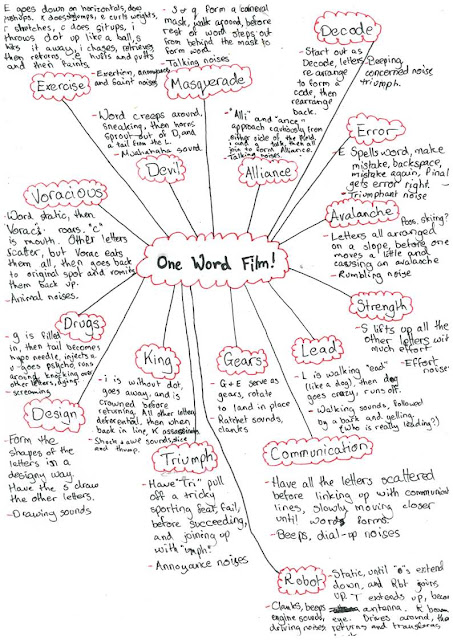 E apes down on horizontals, does
pushups. x does star jumps, e curls weights,
r stretches, c does situps, i
throws dot up like a ball, s
hits it away, i chases, retrieves
then returns, e huffs and puffs
and then faints.
Exercise
- Exertion, annoyance
and faint noises
- S + q form a carneval
mask, walk around, before
rest of word steps out
from behind the mask to
form word.
- Talking noises
Masquerade
Decode
- Start out as
Decode, letters
re arrange
to form a
code, then
rearrange
back.
- Beeping,
concerned noise
triumph.
- Word creeps around,
sneaking, then horns
sprout out of D, and
a tail from the L.
- Mwahahaha sound
Devil
- "Alli" and "ance"
approach cautiously from
either side of the field,
i and a talk, then all
join to form Alliance.
- Talking noises.
Alliance
Error
E Spells word, make
mistake, backspace,
mistake again, final
gets error right.
- Triumphant noise
Voracious
Word static, then
Voraci roars. "C"
is mouth. Other letters
scater, but Vorac eats
them all, then goes back
to original spot and vomits
them back up.
- Animal noises.
Avalanche
Poss. skiing?
- Letters all arranged
on a slope, before one
moves a little and
causing an avalache
- Rumbling noise
One Word Film!
Strength
- S lifts up all the
other letters with
much effort.
- Effort
noises
Drugs
- g is filled
in, then tail becomes
hypo needle, injects u
u goes psycho, runs
around, knocking over
other letters, dying
- screaming
King
- i is without dot,
goes away, and is
crowned before
returning. All other letters
deferential, then when
back in line, K assassinates
- Shock + awe sounds, slice
and thump.
Gears
- G + E serve as
gears, rotate
to land in place
- Ratchet sounds,
clanks
Lead
- L is walking "ead"
(like a dog), then dog
goes crazy, runs off.
- Walking sounds, followed
by a bark and yelling.
(Who is really leading?)
Design
- Form the
shapes of the
letters in a
designy way.
Have the s draw
the other letters.
- Drawing sounds
Triumph
- Have "Tri" pull
off a tricky
sporting feat, fail,
before succeeding,
and joining up
with "umph"
- Annoyance noises
Communication
- Have all the letters scattered
before linking up with communicat
lines, slowly moving closer
until word forms.
- Beeps, dial-up noises
Robot
- Static, until "o"s extend
down, and Rbt joins
up. T exteeds up, becom
antenna. R beam
eye. Drives around, the
returns and transforms
- Clanks, beeps
engine sounds,
driving noises